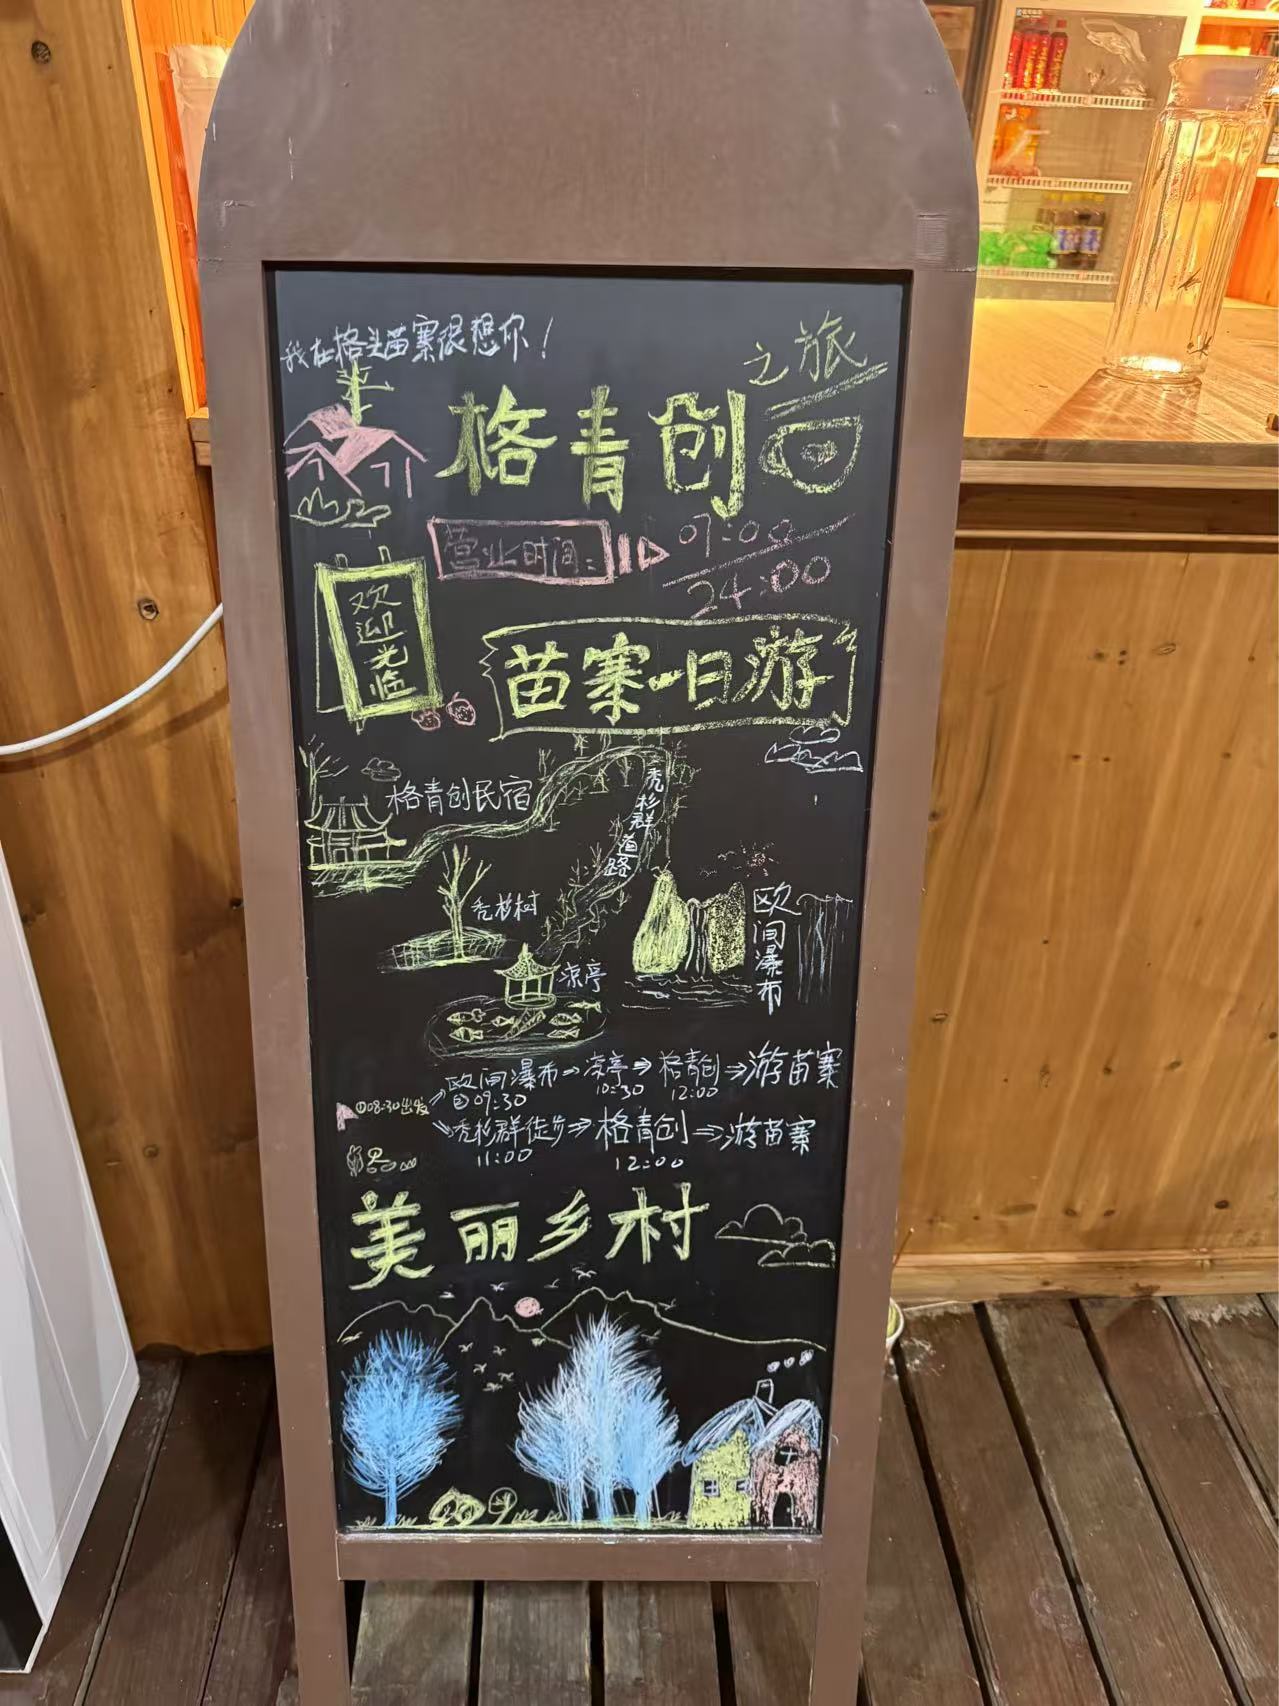 我在格头苗寨很想你！
之旅
格青创
营业时间：
09:00
24:00
欢迎光临
苗寨一日游
格青创民宿
秃杉群道路
秃杉树
凉亭
欧间瀑布
①08:30出发
欧间瀑布→凉亭⇒格青创⇒游苗寨
②09:30 10:30 12:00
秃杉群徒步⇒格青创⇒游苗寨
11:00 12:00
美丽乡村